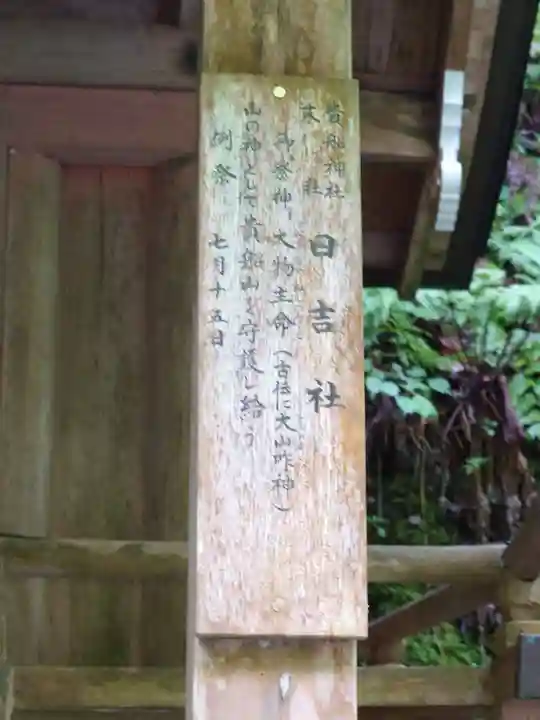 貴船神社
末社
日吉社
御祭神 大物主命(古伝に大山咋神)
山の神として貴船山を守護し給う
例祭 七月十五日